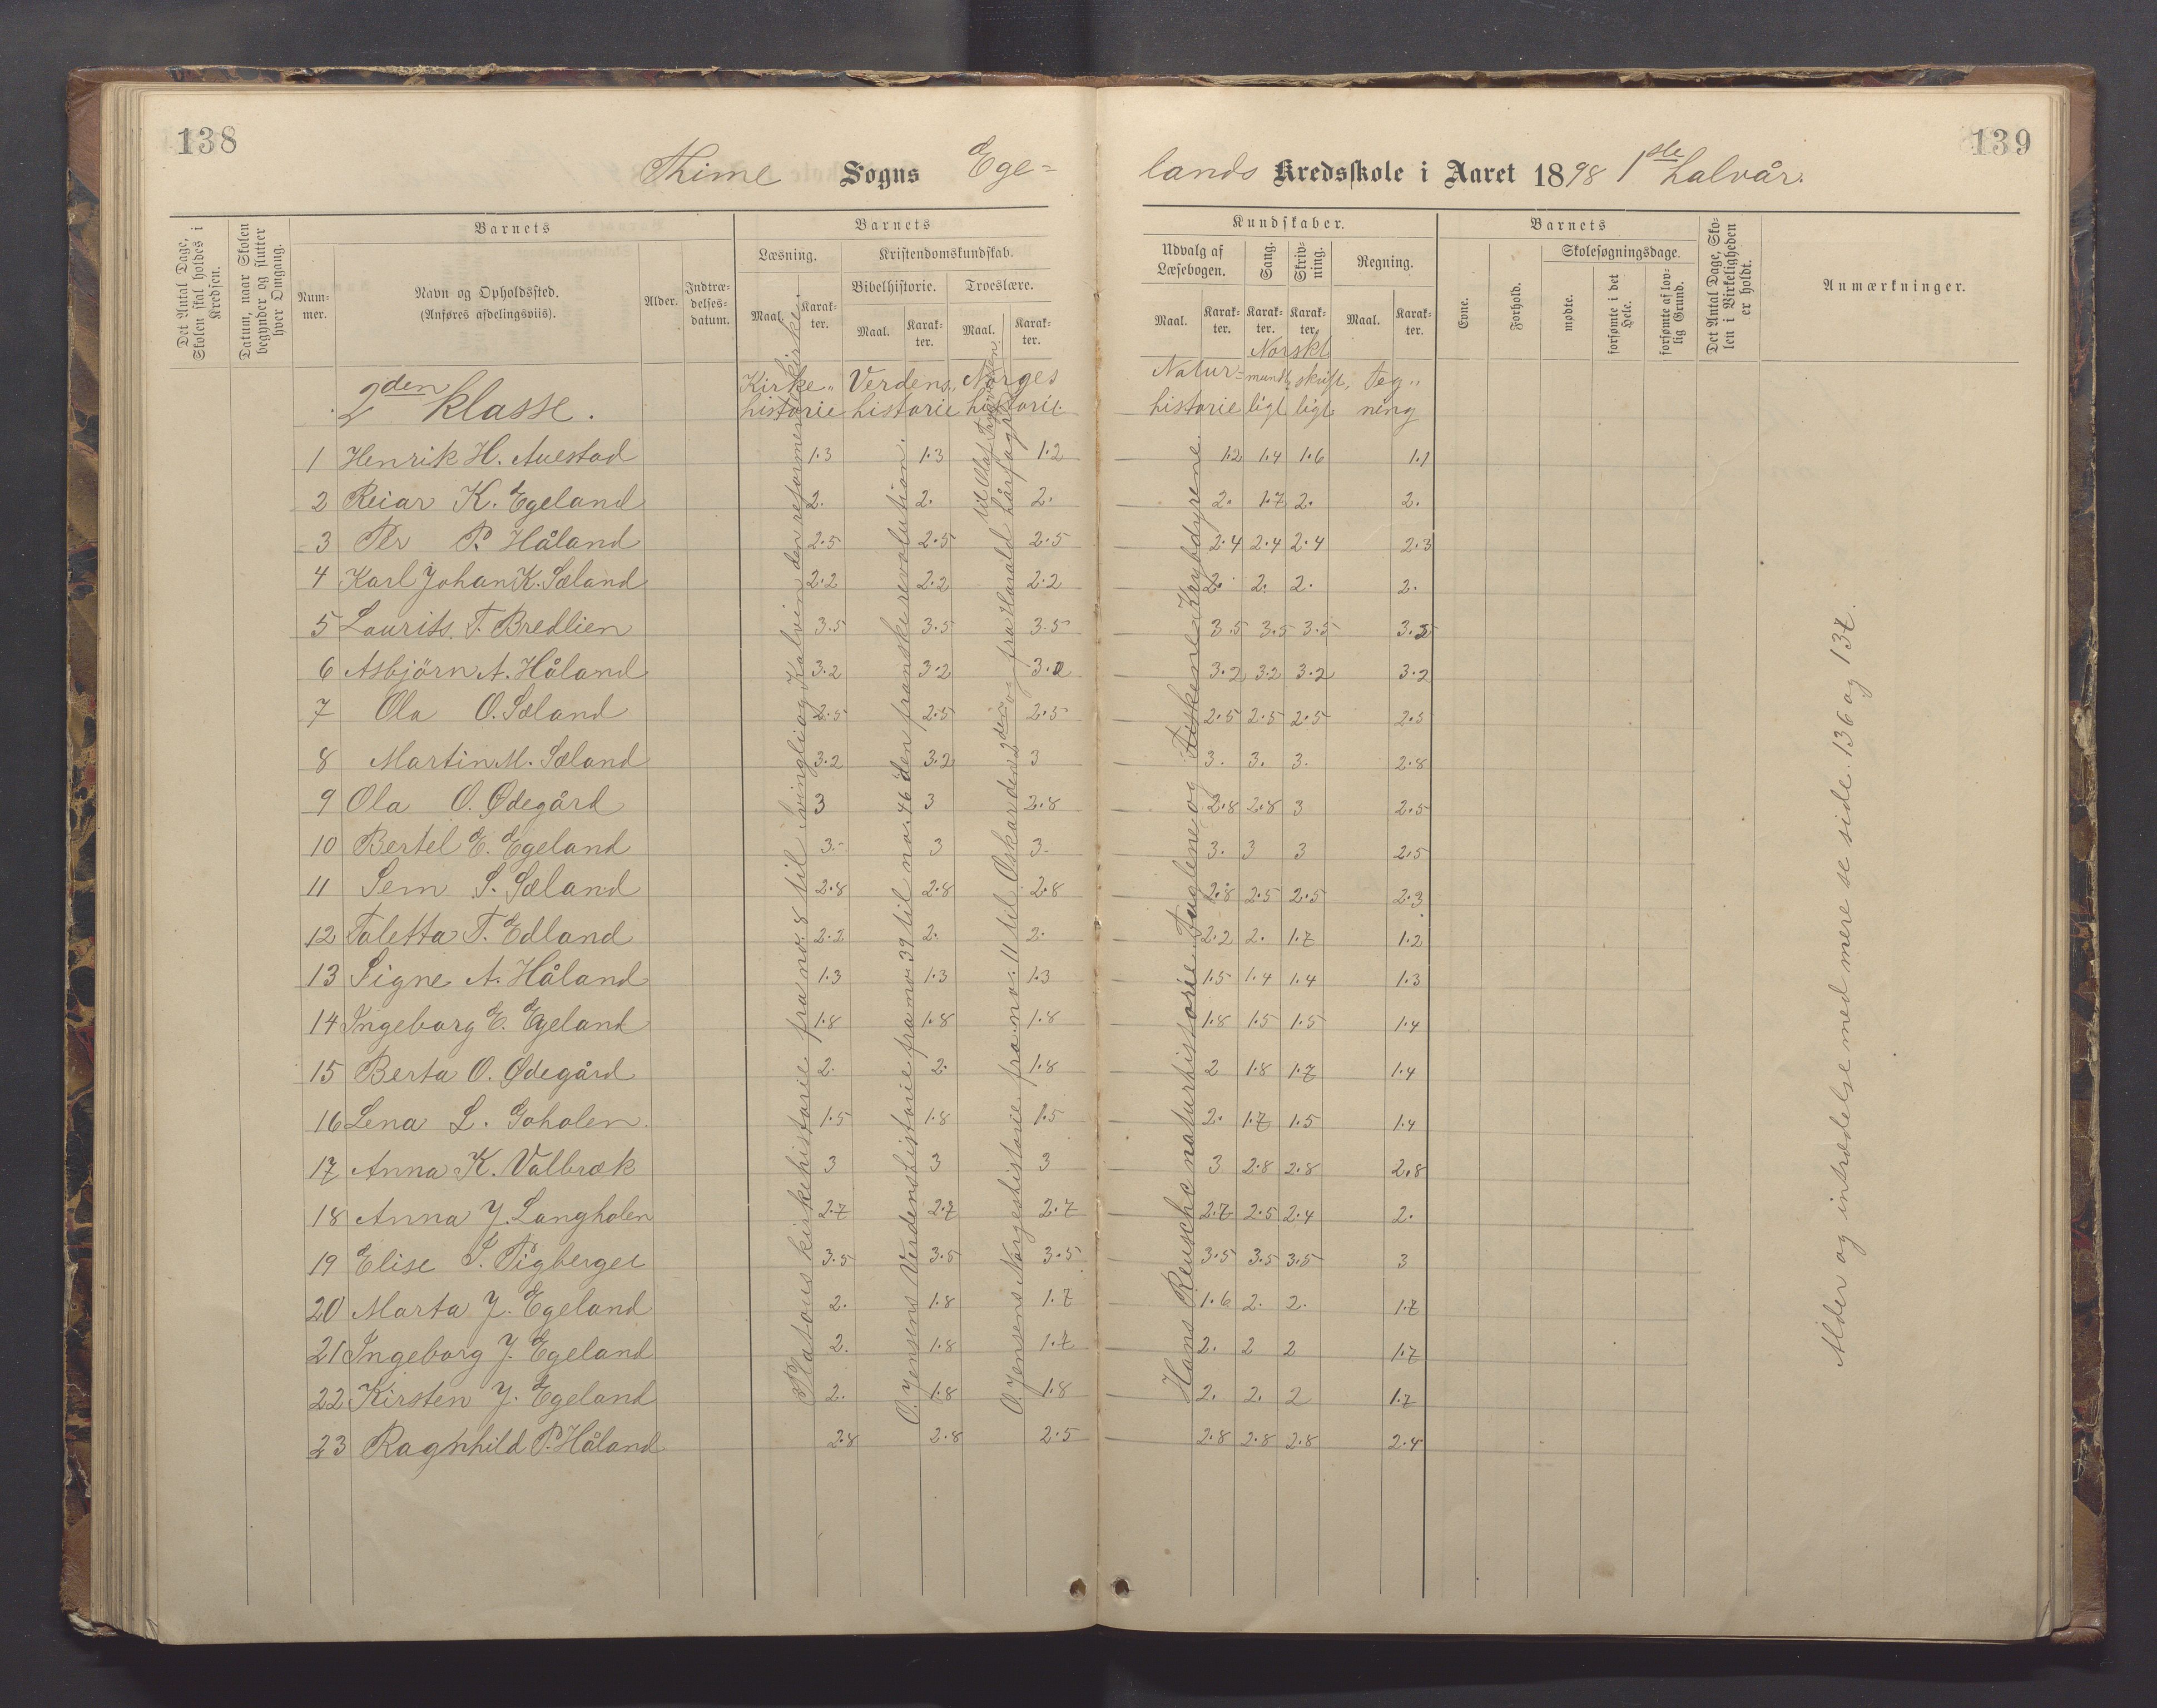 138
139
Thime Sogns Egelands Kredsskole i Aaret 1898 1ste halvår.
Det Antal Dage, Skolen skal holdes i Kredsen.
Datum, naar Skolen begynder og slutter hver Omgang.
Barnets
Num-mer.
Navn og Opholdssted.
(Anføres afdelingsviis).
Alder.
Indtræ-delses-datum.
Barnets
Læsning.
Kristendomskundskab.
Bibelhistorie.
Troeslære.
Maal.
Karak-ter.
Maal.
Karak-ter.
Maal.
Karak-ter.
Kundskaber.
Udvalg af Læsebogen.
Sang.
Skriv-ning.
Regning.
Maal.
Karak-ter.
Karak-ter.
Karak-ter.
Maal.
Karak-ter.
Barnets
Evne.
Forhold.
Skolesøgningsdage.
mødte.
forsømte i det Hele.
forsømte af lov-lig Grund.
Det Antal Dage, Sko-len i Virkeligheden er holdt.
Anmærkninger.
2den klasse.
Kirke„ historie
Verdens„ historie
Norges historie.
Natur= historie
Norskt
mundt„ ligt
skrift„ ligt
Teg„ ning
1 Henrik H. Auestad 1.3 1.3 1.2 1.2 1.4 1.6 1.1
2 Reiar K. Egeland 2. 2. 2. 2. 1.7 2. 2.
3 Per P. Håland 2.5 2.5 2.5 2.4 2.4 2.4 2.3
4 Karl Johan K. Sæland 2.2 2.2 2.2 2. 2. 2. 2.
5 Laurits T. Bredlien 3.5 3.5 3.5 3.5 3.5 3.5 3.5
6 Asbjörn A. Håland 3.2 3.2 3.2 3.2 3.2 3.2 3.2
7 Ola O. Sæland 2.5 2.5 2.5 2.5 2.5 2.5 2.5
8 Martin M. Sæland 3.2 3.2 3 3. 3. 3. 2.8
9 Ola O. Ødegård 3 3 2.8 2.8 2.8 3 2.5
10 Bertel E. Egeland 3.- 3 3. 3. 3 3 2.5
11 Sem S. Sæland 2.8 2.8 2.8 2.8 2.5 2.5 2.3
12 Taletta T. Edland 2.2 2. 2. 2.2 2. 1.7 1.2
13 Signe A. Håland 1.3 1.3 1.3 1.5 1.4 1.4 1.3
14 Ingeborg E. Egeland 1.8 1.8 1.8 1.8 1.5 1.5 1.4
15 Berta O. Ødegård 2. 2. 1.8 2 1.8 1.7 1.4
16 Lena L. Goholen 1.5 1.8 1.5 2. 1.7 1.5 1.4
17 Anna K. Valbræk 3 3 3 3 2.8 2.8 2.8
18 Anna J. Langholen 2.7 2.7 2.7 2.7 2.5 2.4 2.
19 Elise S. Tigberget 3.5 3.5 3.5 3.5 3.5 3.5 3
20 Marta J. Egeland 2. 1.8 1.7 1.6 2. 2. 1.7
21 Ingeborg J. Egeland 2. 1.8 1.7 2. 2 2 1.7
22 Kirsten J. Egeland 2. 1.8 1.8 2. 2. 2 1.7
23 Ragnhild P. Håland 2.8 2.8 2.5 2.8 2.8 2.8 2.4
Platous kirkehistorie fra no: 8 til Zvingli og Kalvin den reformerte kirke.
O. Jensens Verdenshistorie fra no: 39 til no: 46 den franske revolution.
O. Jensens Norgeshistorie fra no: 11 til Oskar den 2den og fra Harald hårfagre
til Olaf Trygvesen.
Hans Reusch naturhistorie Fuglene og Fiskene Krybdyrene.
Alder og intrædelse med mere se side. 136 og 137.